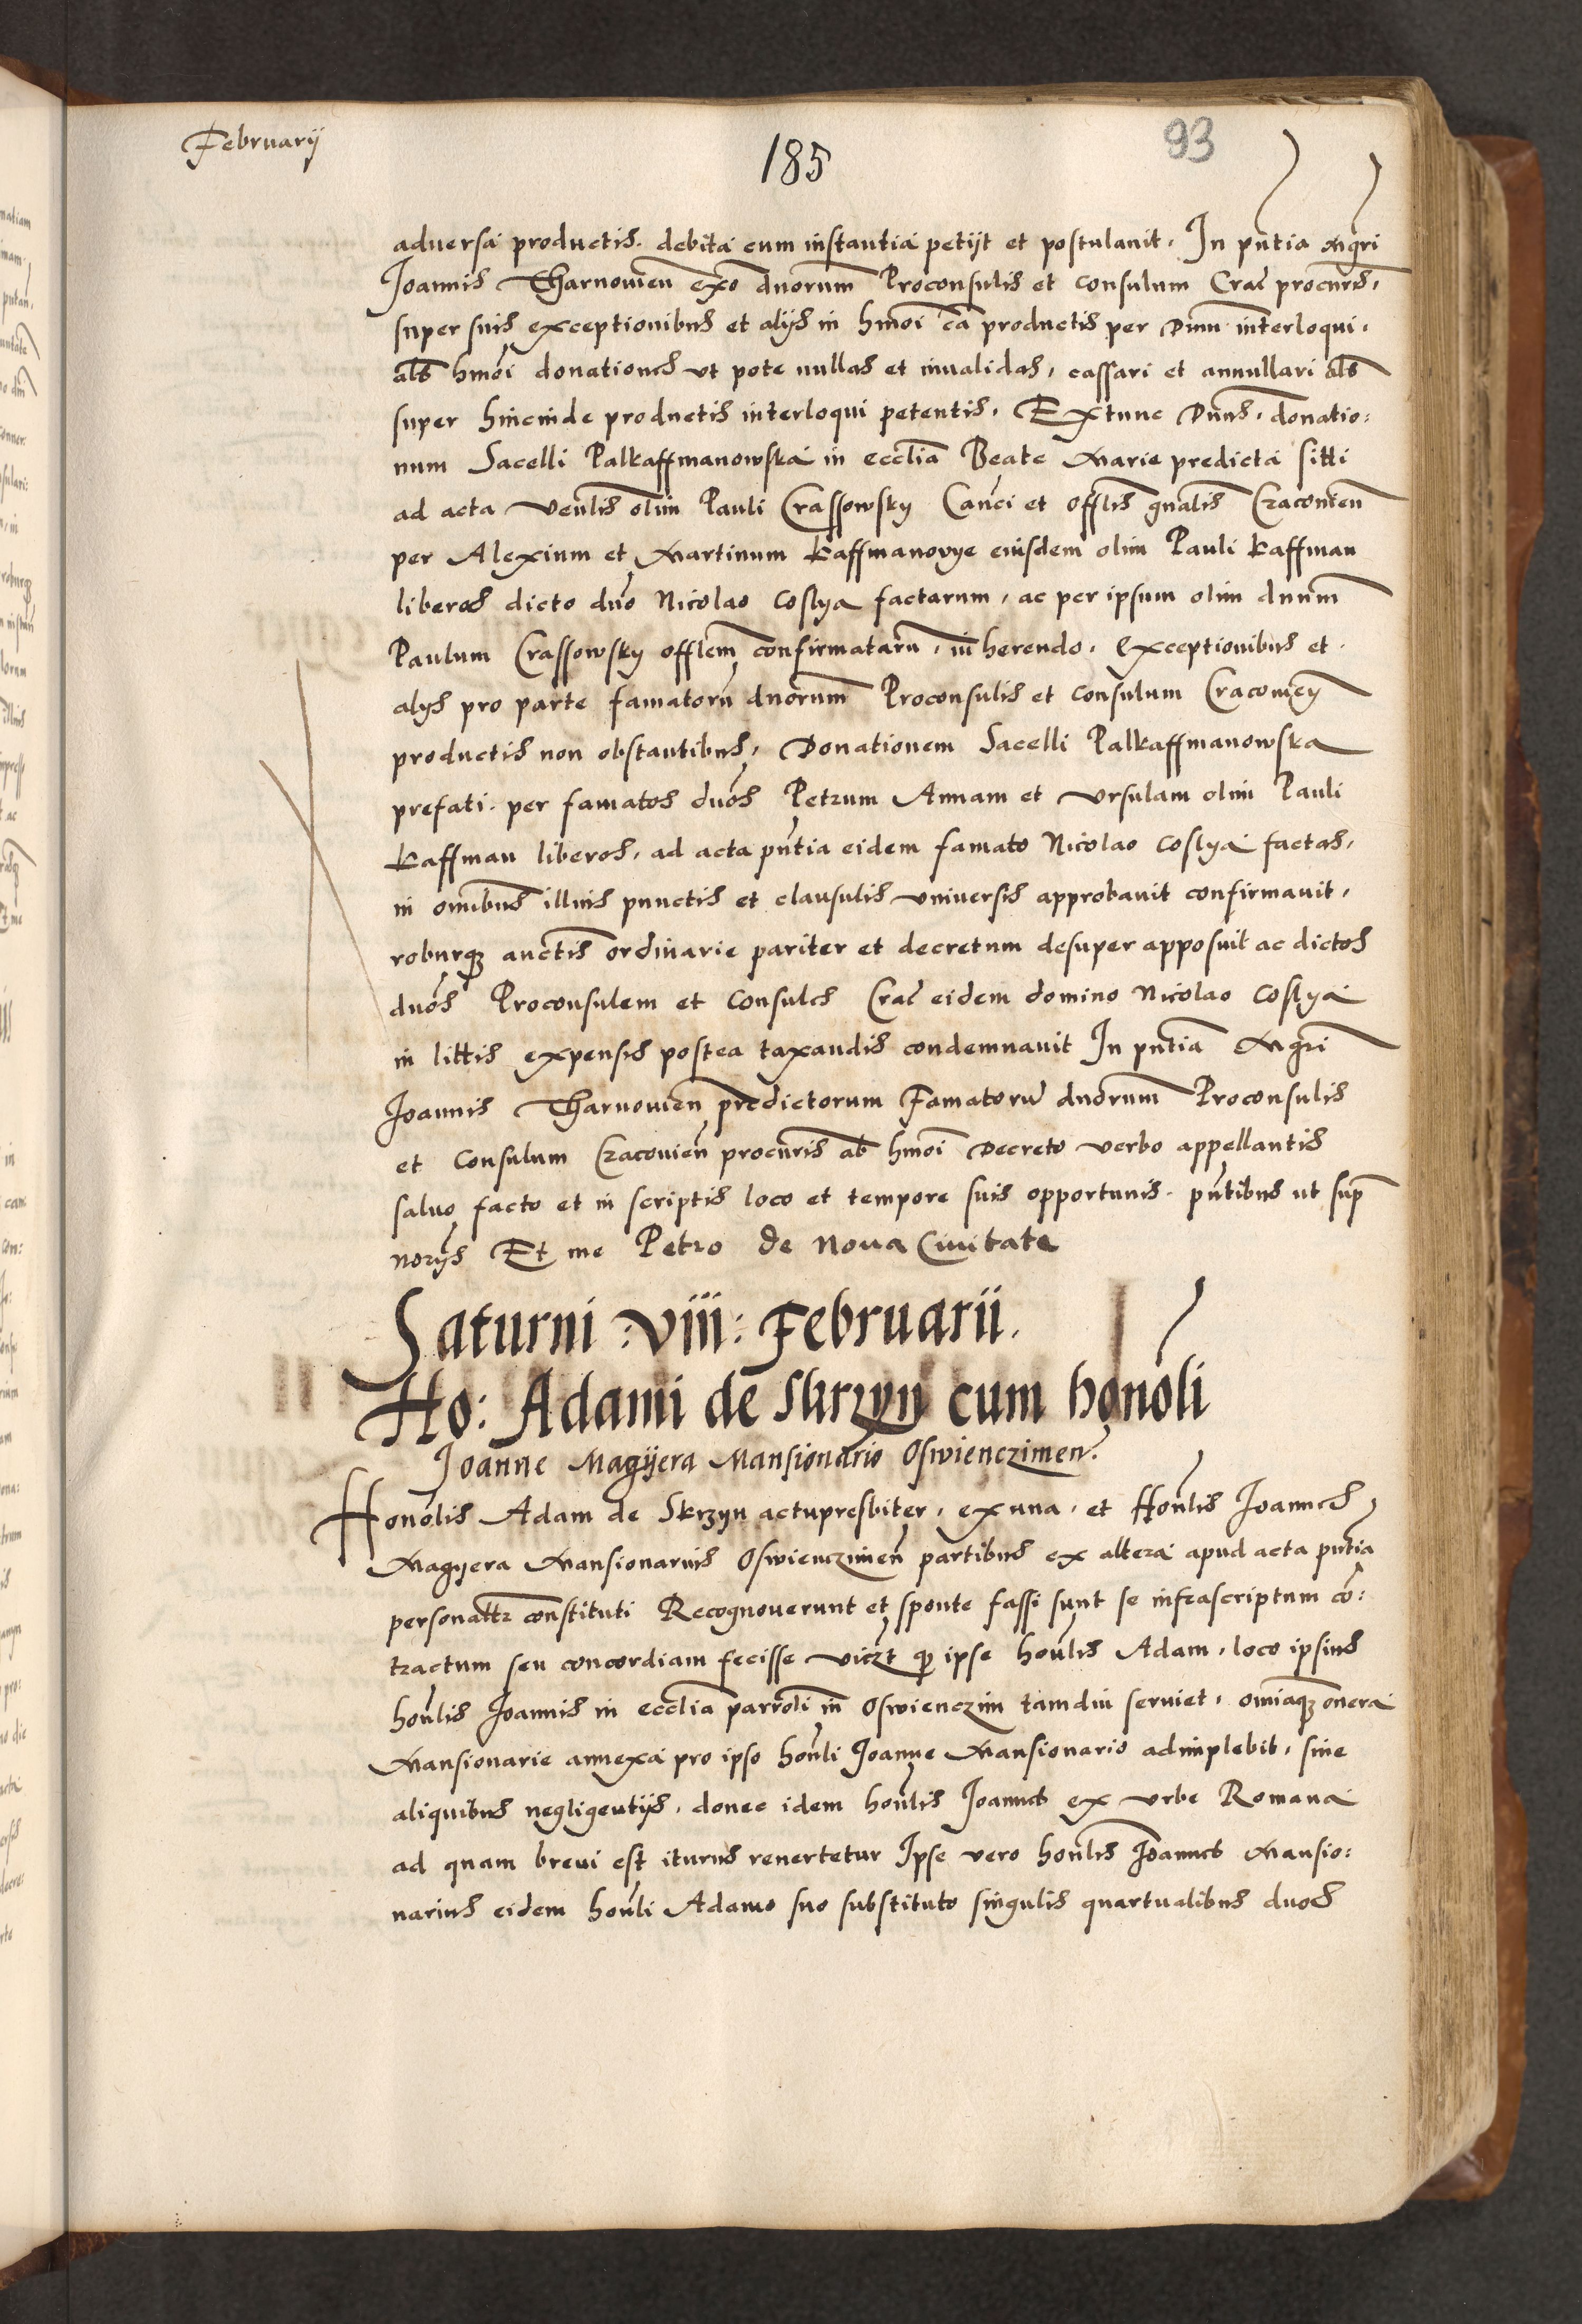 Februarij
185
93
adversa productis. debita cum instantia petijt et postulavit. In pñtia Mgri
Joannis Tharnovieñ exo dnorum Proconsulis et Consulum Crac procuris,
super suis exceptionibus et alijs in hmoi ca productis per Dnm interloqui.
als hmoi donationes ut pote nullas et invalidas, cassari et annullari als
super hincinde productis interloqui petentis. Extunc Dnus. donatio:
num Sacelli Palkaffmanowska in ecclia Beate Marie predicta
ad acta olim Pauli Crassowsky Canci et Offlis gnalis Cracovien
per Alexium et Martinum Kaffmanovye eiusdem olim Pauli Kaffman
liberos dicto dno Nicolao Coslya factarum, ac per ipsum olim dnum
Paulum Crassowsky offlem confirmataru, inherendo. Exceptionibus et
alijs pro parte famatoru dnorum Proconsulis et Consulum Cracovieñ
productis non obstantibus, Donationem Sacelli Palkaffmanowska
prefati. per famatos dnos Petrum Annam et Ursulam olim Pauli
Kaffman liberos, ad acta pñtia eidem famato Nicolao Coslya factas,
in omibus illius punctis et clausulis universis approbavit confirmavit,
roburqz auctis ordinarie pariter et decretum desuper apposuit ac dictos
dnos Proconsulem et Consules Crac eidem domino Nicolao Coslya
in littis expensis postea taxandis condemnavit In pntia Mgri
Joannis Tharnovieñ predictorum Famatoru dnorum Proconsulis
et Consulum Cracovieñ procuris ab hmoi Decreto verbo appellantis
salvo facto et in scriptis loco et tempore suis opportunis. pntibus ut sup
norijs Et me Petro de Nova Civitate
Saturni :viii: Februarii.
Ho: Adami de Skrzyn cum honoli
Joanne Magijera Mansionario Oswienczimen.
Honolis Adam de Skrzyn actupresbiter, ex una, et Honlis Joannes
Magijera Mansionarius Oswienczimen partibus ex altera apud acta pntia
personaltr constituti Recognoverunt et sponte fassi sunt se infrascriptum co:
tractum seu concordiam fecisse viczt qz ipse honlis Adam. loco ipsius
honlis Joannis in ecclia parroli in Oswienczim tamdiu serviet, omiaqz onera
Mansionarie annexa pro ipso honli Joanne Mansionario adimplebit, sine
aliquibus negligentijs, donec idem honlis Joannes ex urbe Romana
ad quam brevi est iturus revertetur Ipse vero honlis Joannes Mansio:
narius eidem honli Adamo suo substituto singulis quartualibus duos